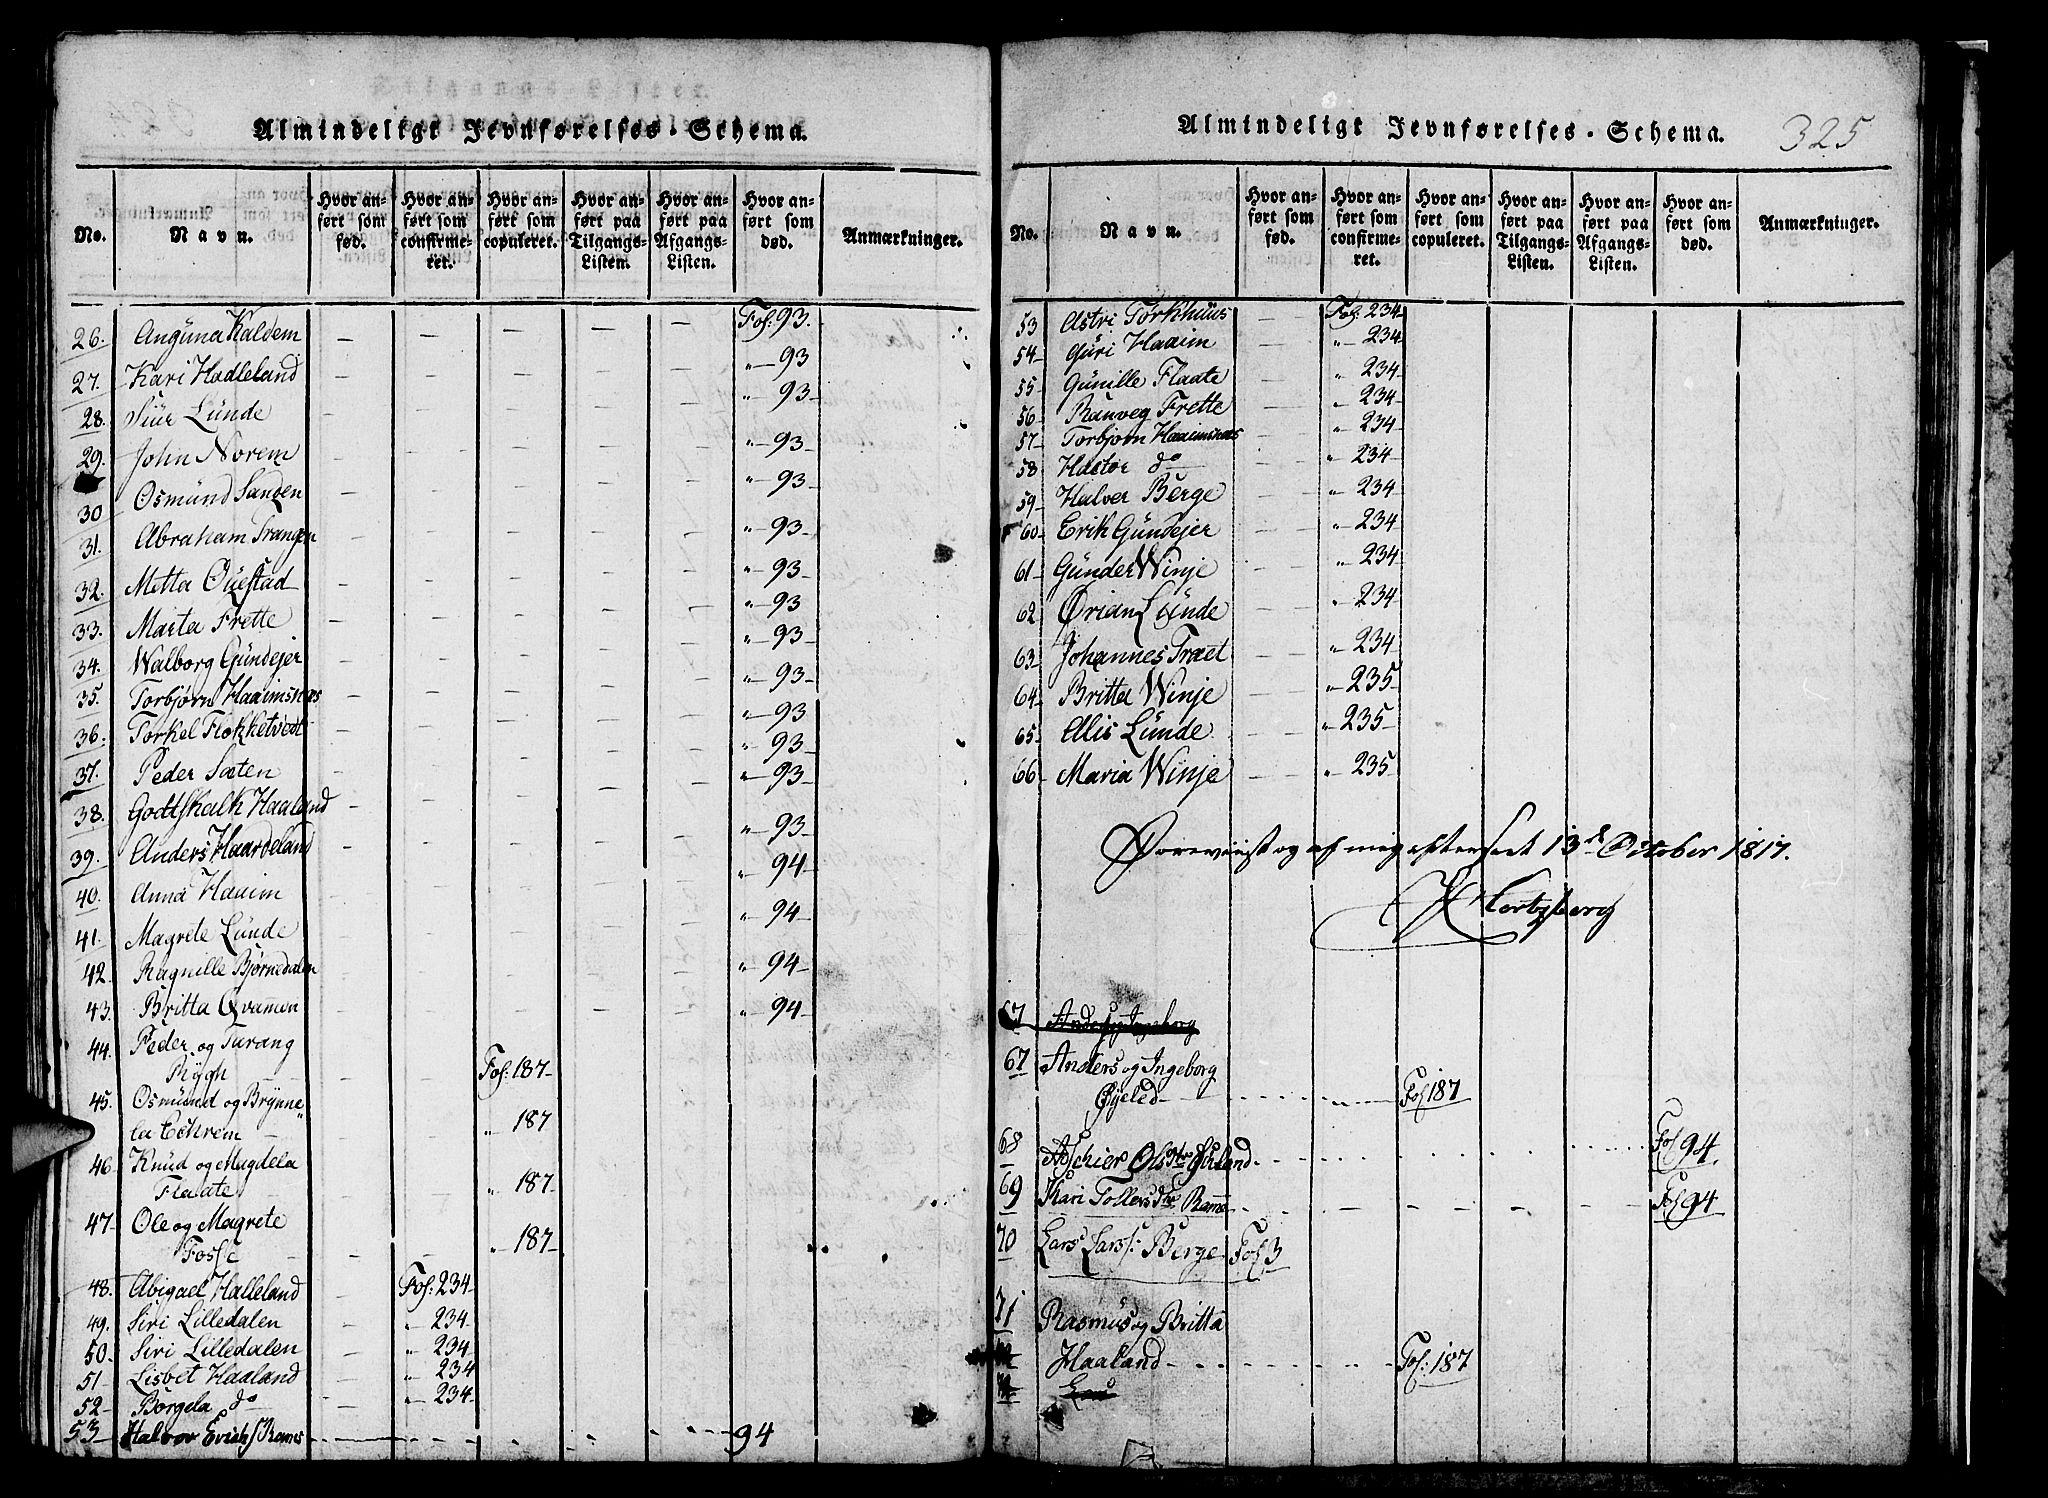 Almindeligt Jevnførelses-Schema.
No. Navn. Hvor anført som fød. Hvor anført som confirmeret. Hvor anført som copuleret. Hvor anført paa Tilgangs-Listen. Hvor anført paa Afgangs-Listen. Hvor anført som død. Anmærkninger.
26. Anguna Kaldem Fol. 93.
27. Kari Hadleland „ 93
28. Siur Lunde „ 93
29. John Norem „ 93
30 Osmund Sanden „ 93
31. Abraham Srangen „ 93
32. Metta Questad „ 93
33. Marta Frette „ 93
34. Walborg Gundejer „ 93
35. Torbjørn Haaimsnæs „ 93
36. Torkel Flokketvedt „ 93
37. Peder Sæten „ 93
38. Godtskalk Haaland „ 93
39. Anders Haardeland „ 93
40. Anna Haaim „ 94
41. Magrete Lunde „ 94
42. Ragnille Bjørnedalen „ 94
43. Britta Qvamen „ 94
44. Peder og Turang
Rygh Fol: 187
45. Osmund og Brynne„
la Echrem „ 187
46 Knud og Magdela
Flaate „ 187
47 Ole og Magrete
Fosse „ 187
48. Abigael Halleland Fol: 234
49. Siri Lilledalen „ 234
50. Siri Lilledalen „ 234
51 Lisbet Haaland „ 234
52 Børgela do „ 234
53 Halvor Erichs Rames 94
Almindeligt Jevnførelses-Schema. 325
No. Navn. Hvor anført som fød. Hvor anført som confirmeret. Hvor anført som copuleret. Hvor anført paa Tilgangs-Listen. Hvor anført paa Afgangs-Listen. Hvor anført som død. Anmærkninger.
53 Astri Torkhuus Fol. 234
54 Guri Haaim „ 234
55 Gunille Flaate „ 234
56 Ranveg Frette „ 234
57 Torbjørn Haaimsnæs „ 234
58 Hastor do „ 234
59 Halver Berge „ 234
60 Erik Gundejer „ 234
61 Gunder Winje „ 234
62 Ørian Lunde „ 234
63 Johannes Træet „ 234
64 Britta Winje „ 235
65 Alis Lunde „ 235
66 Maria Winje „ 235
Foreviist og af mig efterseet 13de October 1817.
Hertzberg
67 Anders Ingeborg
67 Anders og Ingeborg
Øyeled Fol 187
68 Aschier Ols Fol 94
69 Kari Tollersdtr Rame Fol 94
70 Lars Lars: Berge Fol 3
71 Rasmus og Britta
Haaland Fol: 187